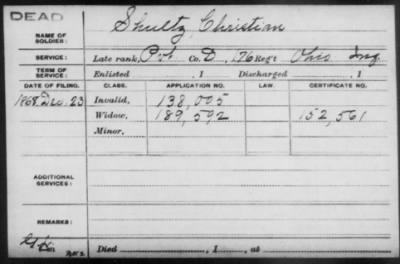 DEAD
NAME OF SOLDIER: Shultz, Christian
SERVICE: Late rank, Pvt Co. D, 176 Regt Ohio Inf.
TERM OF SERVICE: Enlisted , 1 Discharged , 1
DATE OF FILING. CLASS. APPLICATION NO. LAW. CERTIFICATE NO.
1868 Dec. 23 Invalid, 138,005
Widow, 189,592 152,561
Minor,
ADDITIONAL SERVICES:
REMARKS:
Died , 1 , at